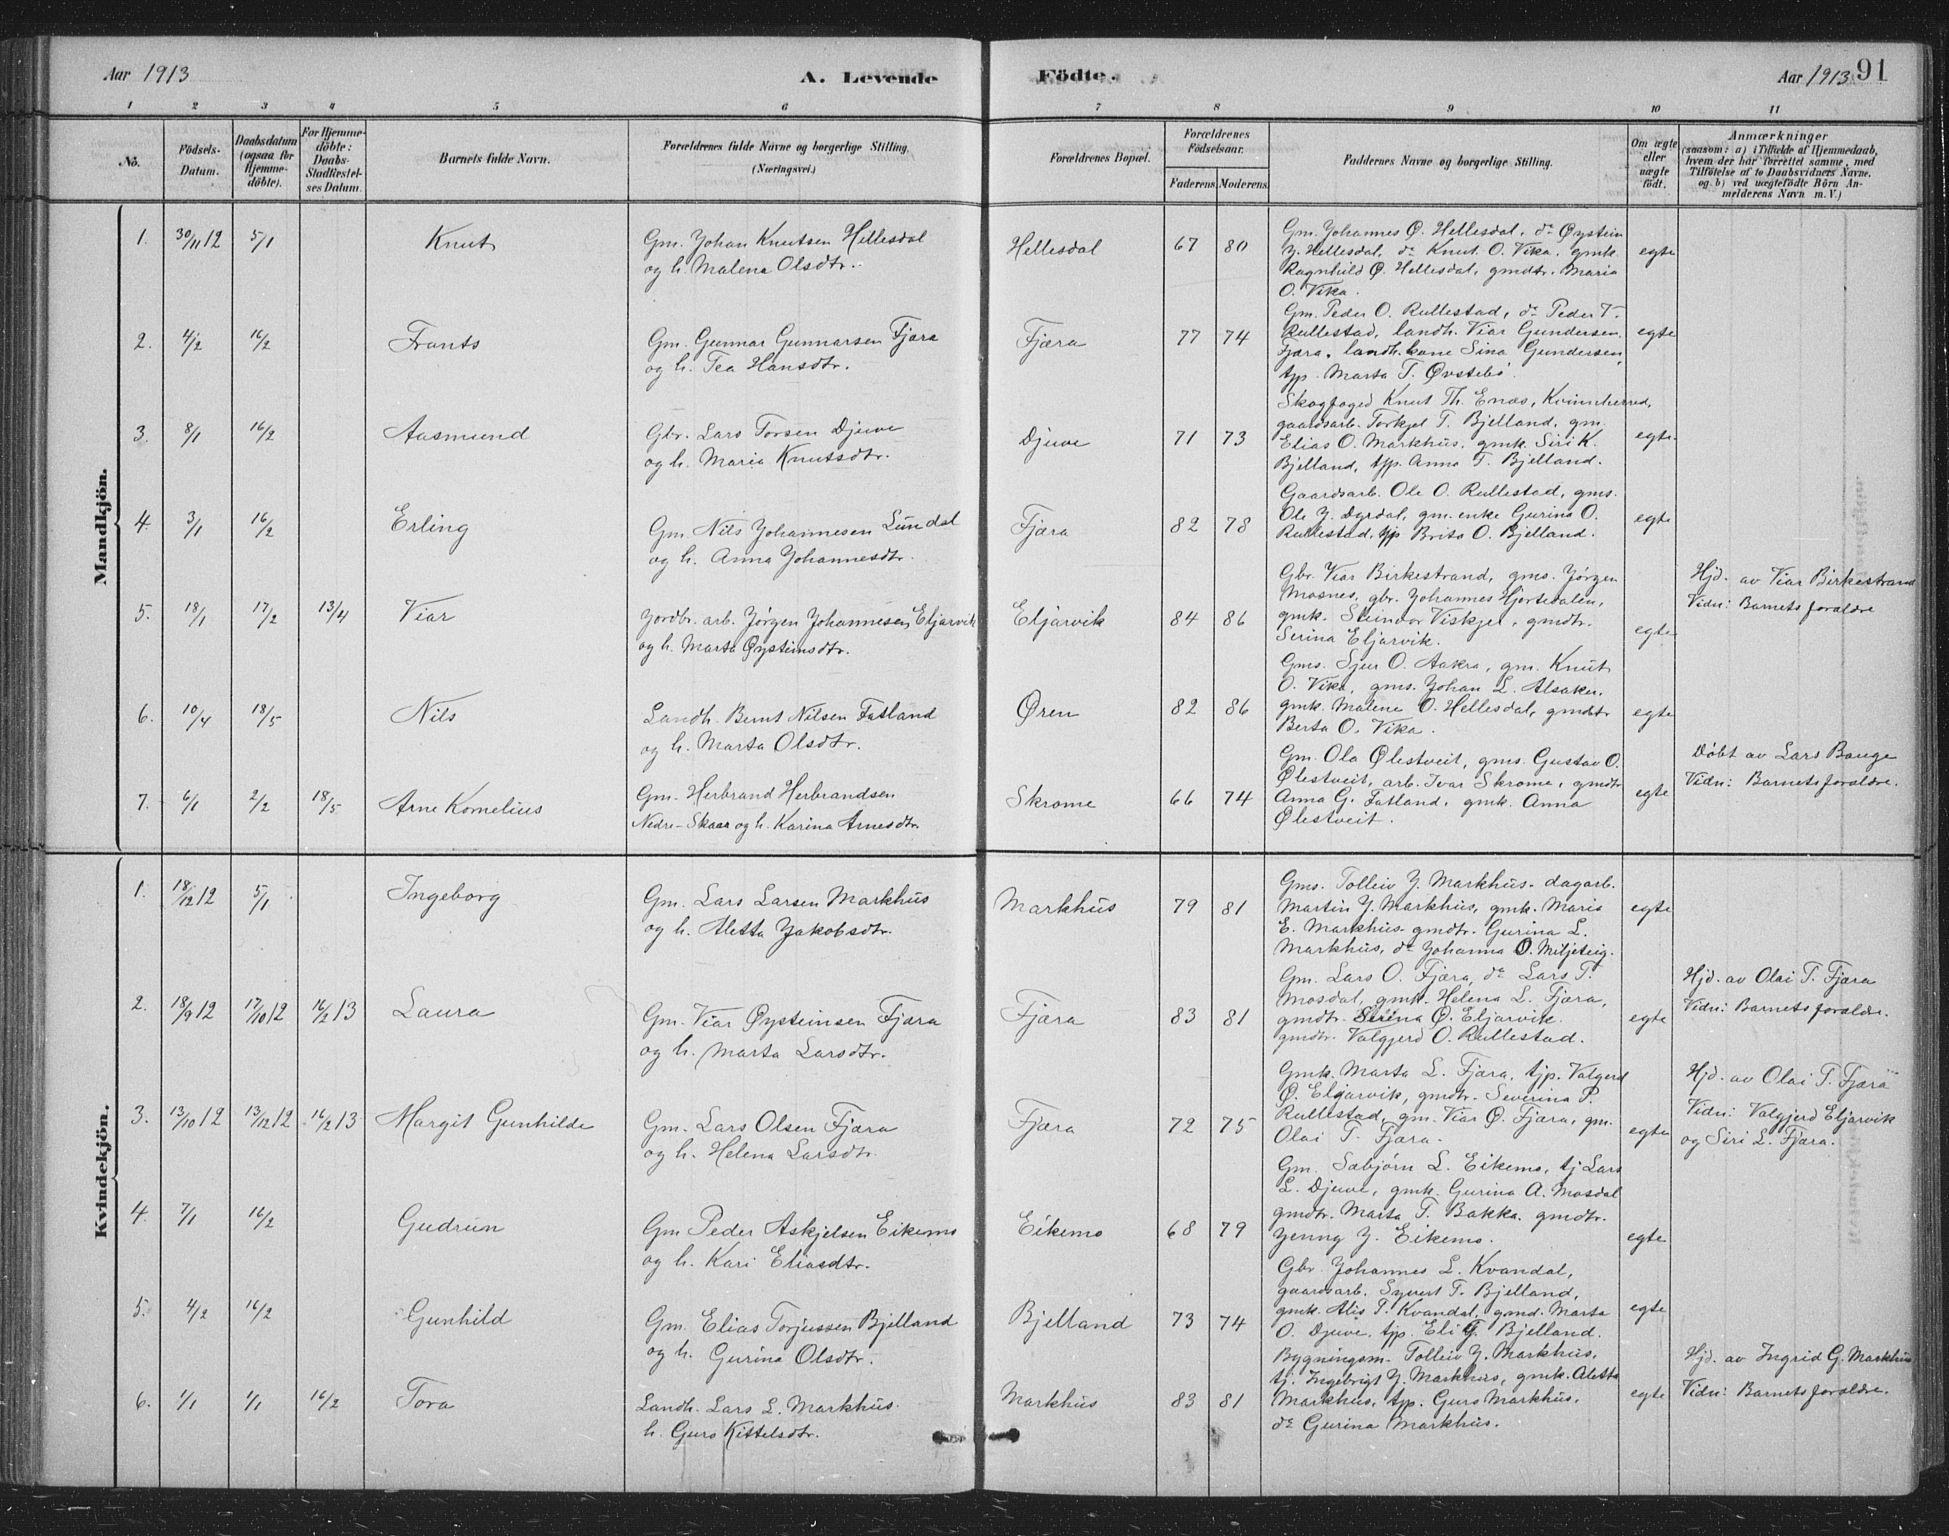 Aar 1913
A. Levende
Födte.
Aar 1913
91
1 2 3 4 5 6 7 8 9 10 11
No.
Födsels-
Datum.
Daabsdatum
(ogsaa for
Hjemme-
döbte).
For Hjemme-
döbte:
Daabs-
Stadfæstel-
ses Datum.
Barnets fulde Navn.
Forældrenes fulde Navne og borgerlige Stilling.
(Næringsvei.)
Forældrenes Bopæl.
Forældrenes
Födselsaar.
Faderens. Moderens.
Faddernes Navne og borgerlige Stilling.
Om ægte
eller
uægte
födt.
Anmærkninger
(saasom: a) i Tilfælde af Hjemmedaab,
hvem der har forrettet samme, med
Tilföielse af to Daabsvidners Navne,
og b) ved uægtefödte Börn An-
melderens Navn m. V.)
Mandkjön.
1. 30/11 12 5/1 Knut
Gm. Johan Knutsen Hellesdal
og h. Malena Olsdtr.
Hellesdal 67 80
Gm. Johannes Ø. Hellesdal, do Øystein
J. Hellesdal, do Knut O. Vika, gmk.
Ragnhild Ø. Hellesdal, gmdtr. Maria
O. Vika.
egte
2. 4/2 16/2 Frants
Gm. Gunnar Gunnarsen Fjæra
og h. Tea Hansdtr.
Fjæra 77 74
Gm. Peder O. Rullestad, do Peder T.
Rullestad, landh. Viar Gundersen
Fjæra, landh. kone Sina Gundersen,
tjp. Marta T. Øvstebö.
egte
3. 8/1 16/2 Aasmund
Gbr. Lars Torsen Djuve
og h. Maria Knutsdtr.
Djuve 71 73
Skogfoged Knut Th. Enæs, Kvinnherred,
gaardsarb. Torkjel T. Bjelland, gm.
Elias O. Markhus, gmk. Siri K.
Bjelland, tjp. Anna T. Bjelland.
egte
4 3/1 16/2 Erling
Gm. Nils Johannesen Lundal
og h. Anna Johannesdtr.
Fjæra 82 78
Gaardsarb. Ole O. Rullestad, gms.
Ole J. Dyrdal, gm. enke Gurina O.
Rullestad, tjp Brita O. Bjelland.
egte
5. 18/1 17/2 13/4 Viar
Jordbr. arb. Jørgen Johannesen Eljarvik
og h. Marta Øysteinsdtr.
Eljarvik 84 86
Gbr. Viar Birkestrand, gms. Jørgen
Mosnes, gbr. Johannes Hjortedalen,
gmk. Steindor Viskjel, gmdtr.
Serina Eljarvik.
egte
Hjd. av Viar Birkestrand
Vidn: Barnets forældre
6. 10/4 18/5 Nils
Landh. Bernt Nilsen Fatland
og h. Marta Olsdtr.
Øren 82 86
Gms. Sjur O. Aakra, gm. Knut
O. Vika, gms. Johan L. Alsaker,
gmk. Malene O. Hellesdal, gmdtr
Berta O. Vika.
egte
7. 6/1 2/2 18/5 Arne Kornelius
Gm. Herbrand Herbrandsen
Nedre-Skaar og h. Karina Arnesdtr.
Skrome 66 74
Gm. Ola Ølestveit, gms. Gustav O.
Ølestveit, arb. Ivar Skrome, gmdtr
Anna G. Fatland, gmk. Anna
Ølestveit.
egte
Døbt av Lars Bauge
Vidn: Barnets forældre.
Kvindekjön.
1. 18/12 12 5/1 Ingeborg
Gm. Lars Larsen Markhus
og h. Aletta Jakobsdtr.
Markhus 79 81
Gms. Tolleiv J. Markhus. dagarb.
Martin J. Markhus, gmk. Maria
E. Markhus gmdtr. Gurina L.
Markhus, do Johanna O. Miljeteig.
egte
2. 18/9 12 17/10 12 16/2 13 Laura
Gm. Viar Øysteinsen Fjæra
og h. Marta Larsdtr.
Fjæra 83 81
Gm. Lars O. Fjæra, do Lars T.
Mosdal, gmk. Helena L. Fjæra,
gmdtr. Serina Ø. Eljarvik.
gmdtr. Valgjerd O. Rullestad.
egte
Hjd. av Olai T. Fjæra
Vidn: Barnets forældre.
3. 13/10 12 13/12 12 16/2 13 Margit Gunhilde
Gm. Lars Olsen Fjæra
og h. Helena Larsdtr.
Fjæra 72 75
Gmk. Marta L. Fjæra, tjp. Valgerd
Ø. Eljarvik, gmdtr. Severina P.
Rullestad, gm. Viar Ø. Fjæra, gm.
Olai T. Fjæra.
egte
Hjd. av Olai T. Fjæra
Vidn: Valgjerd Eljarvik
og Siri L. Fjæra.
4. 7/1 16/2 Gudrun
Gm Peder Askjelsen Eikemo
og h. Kari Eliasdtr.
Eikemo 68 79
Gm. Sæbjørn L. Eikemo, tj Lars
L. Djuve, gmk. Gurina A. Mosdal
gmdtr. Marta T. Bakka. gmdtr.
Jenny J. Eikemo.
egte
5. 4/2 16/2 Gunhild
Gm. Elias Torjussen Bjelland
og h. Gurina Olsdtr.
Bjelland 73 74
Gbr. Johannes L. Kvandal,
gaardsarb. Syvert T. Bjelland,
gmk. Alis T. Kvandal, gmd. Marta
O. Djuve, tjp. Eli T. Bjelland.
egte
6. 1/1 1/1 16/2 Tora
Landh. Lars L. Markhus.
h. Guro Kittelsdtr.
Markhus 83 81
Bygningsm. Tolleiv J. Markhus,
tj. Ingebrigt J. Markhus, gmk. Aletta
Markhus, tjp. Guro Markhus,
do Gurina Markhus.
egte
Hjd. av Ingrid G. Markhus
Vidn: Barnets forældre.